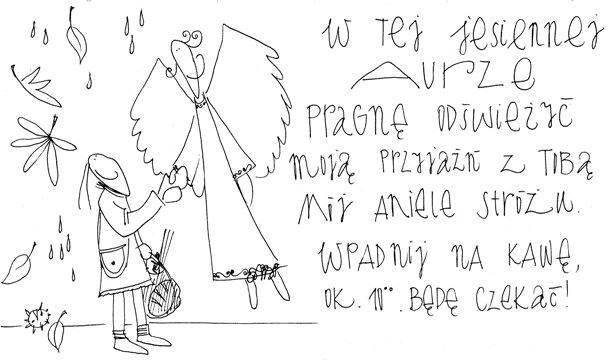 W TEJ JESIENNEJ
AURZE
PRAGNĘ ODŚWIEŻYĆ
MOJĄ PRZYJAŹŃ Z TOBĄ
MÓJ ANIELE STRÓŻU.
WPADNIJ NA KAWĘ,
OK. 10⁰⁰. BĘDĘ CZEKAĆ!